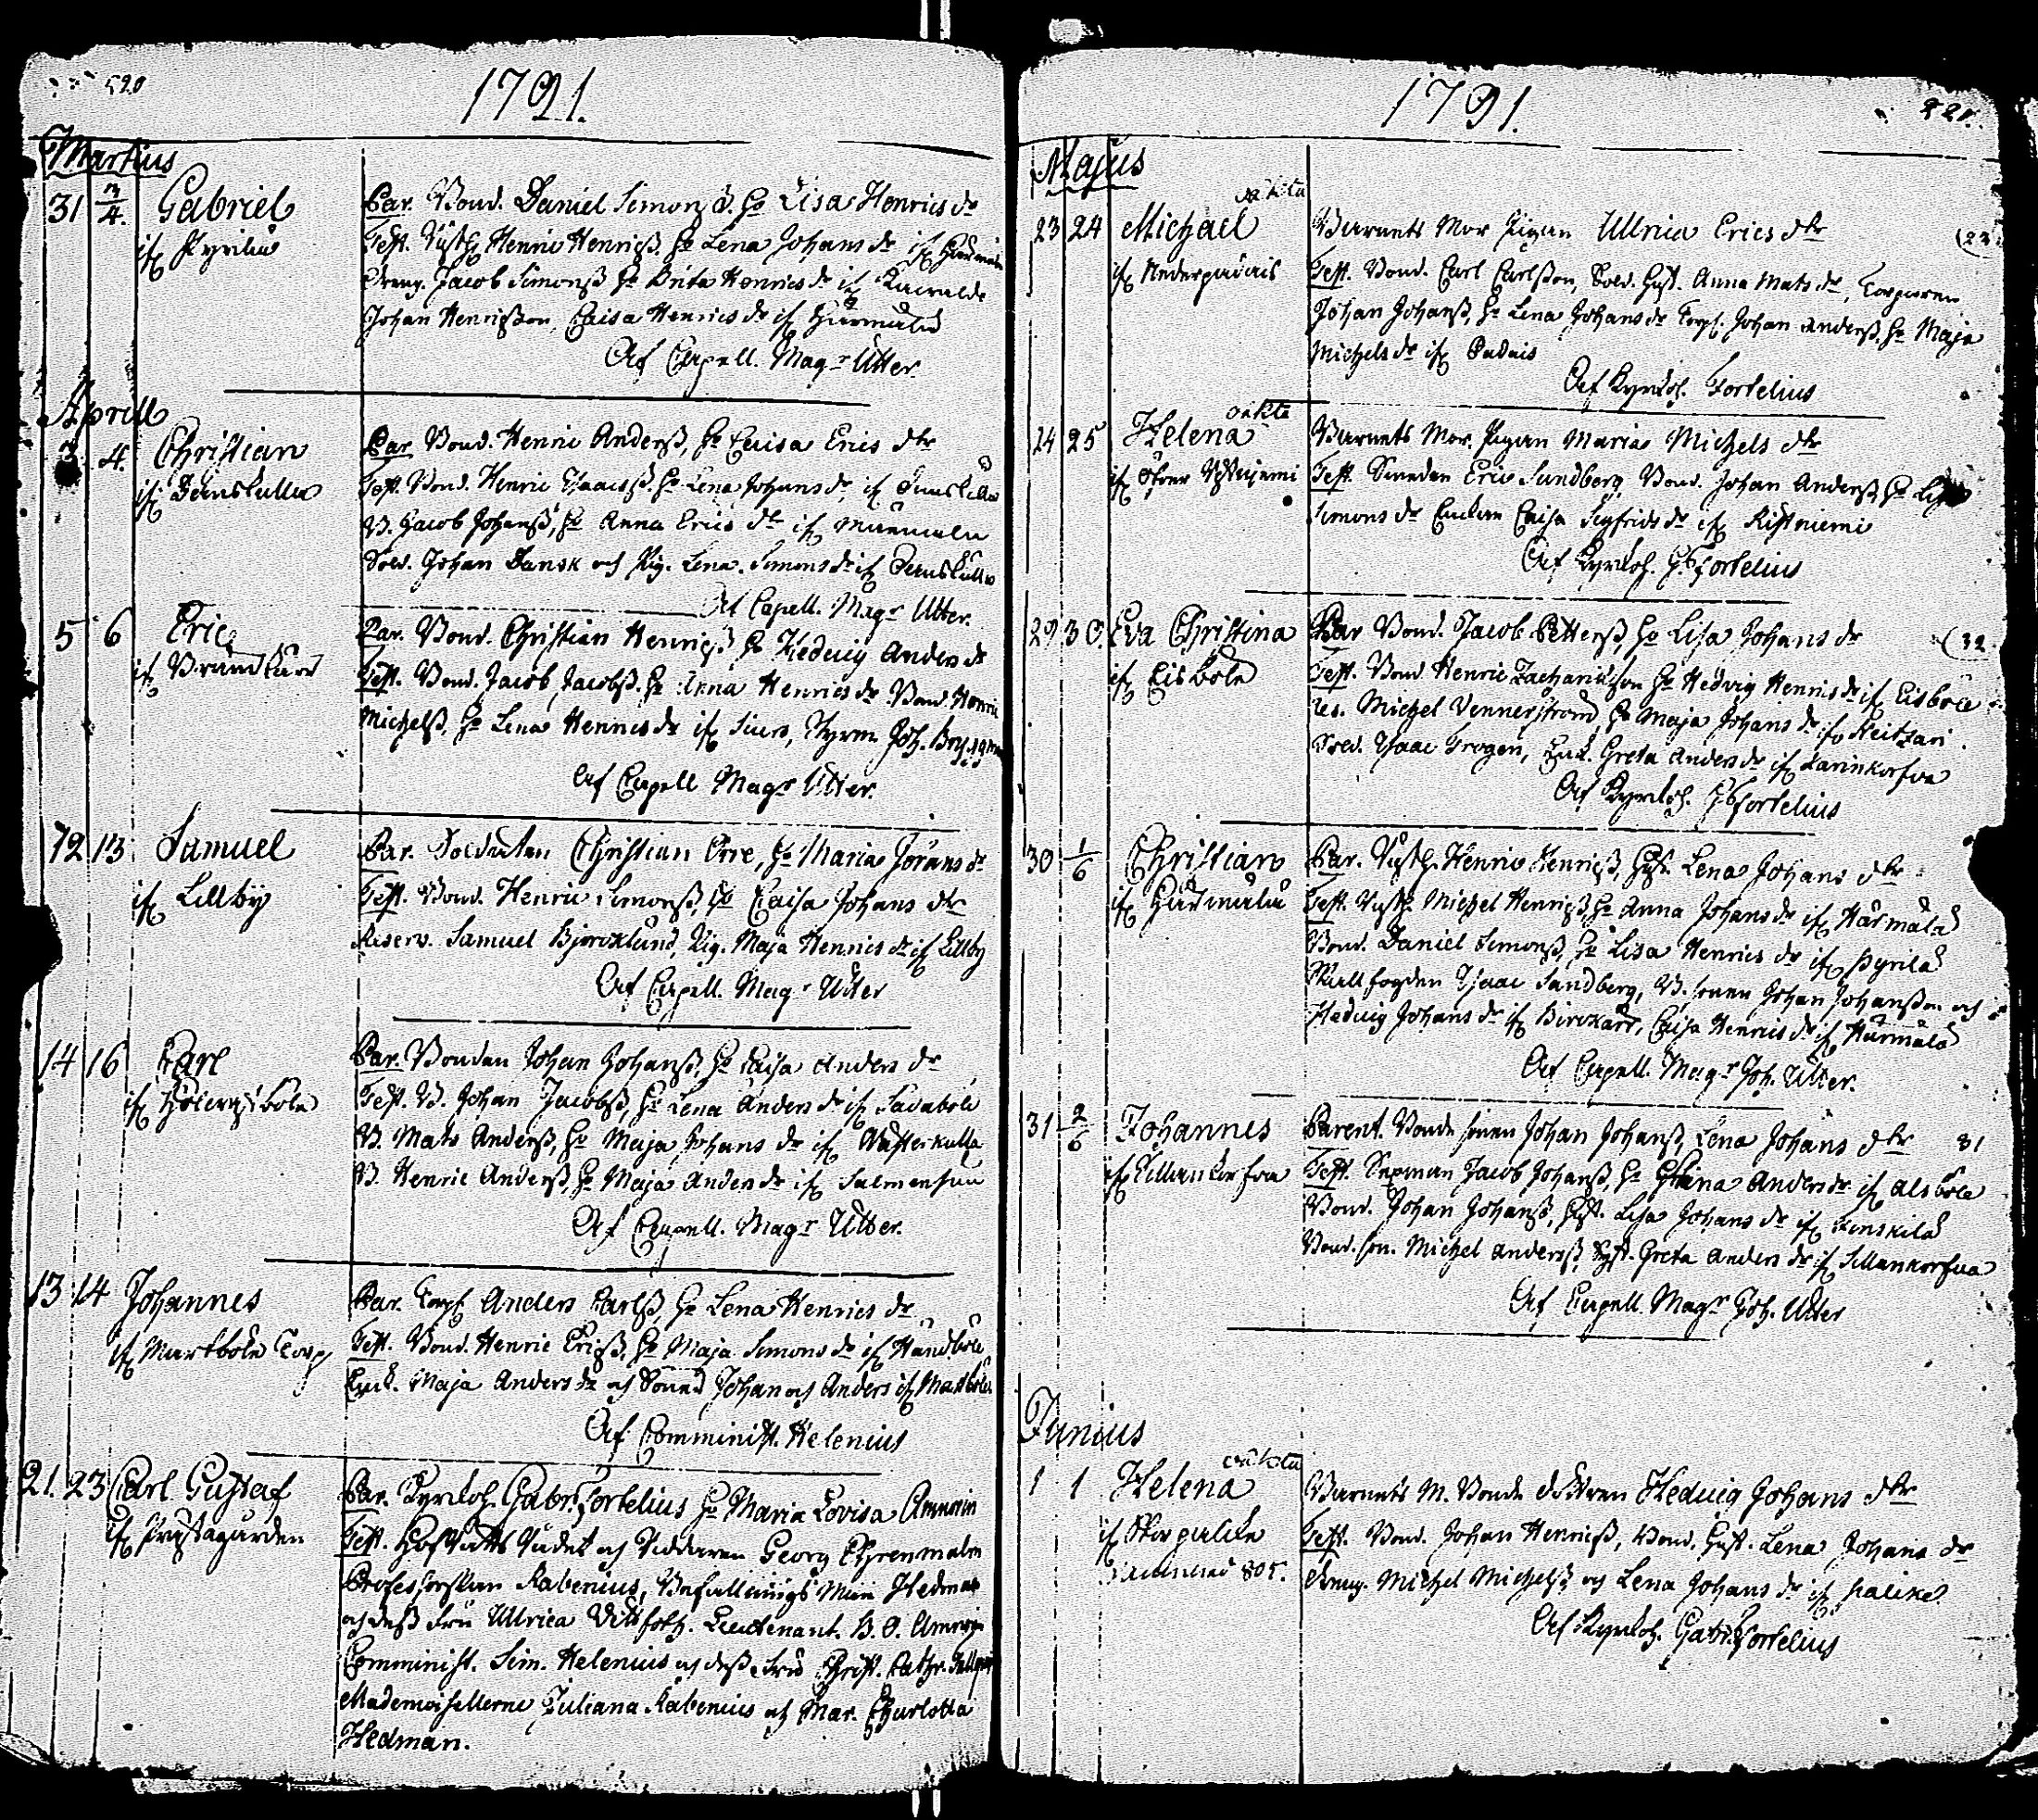 520
1791.
Martius
31 3/4. Gabriel
if Pyrilä
Par. Bond. Daniel Simonss. H. Lisa Henrics dr
Test. Henric Henricss. H. Lena Johans dr if Härmälä
Dreng. Jacob Simonss H. Brita Henrics dr if
Johan Henricsson, Caisa Henrics dr if Härmälä
Af Capell. Magr Utter.
Aprill
3. 4. Christian
if Denskulla
Par. Bond. Henric Anderss, H. Caisa Erics dtr
Test. Bond. Henric Isaacss. H. Lena Johans dr if Denskulla
B. Jacob Johanss, H. Anna Erics dr if
Sold. Johan Dansk och Pig. Lena Simons dr if Denskulla
Af Capell. Magr Utter.
5 6 Eric
if Brandkärr
Par. Bond. Christian Henricss H. Hedvig Anders dr
Test. Bond. Jacob Jacobss. H. Anna Henrics dr Bond. Henric
Michelss, H. Lena Henrics dr if Joh.
Af Capell Magr Utter.
12 13 Samuel
if Lillby
Par. Soldaten Christian Orre, H. Maria Jörans dr
Test. Bond. Henric Simonss, H. Caisa Johans dtr
Reserv. Samuel Björcklund, Pig. Maja Henrics dr if Lillby
Af Capell. Magr Utter
14 16 Carl
if
Par. Bonden Johan Johanss, H. Caisa Anders dr
Test. B. Johan Jacobss, H. Lena Anders dr if
B. Mats Anderss, H. Maja Johans dr if Westerkulla
B. Henric Anderss, H. Maja Anders dr if
Af Capell. Magr Utter.
13 14 Johannes
if Markböle Torp
Par. Torp. Anders Carlss, H. Lena Henrics dr
Test. Bond. Henric Ericss, H. Maja Simons dr if Handböle
Enk. Maja Anders dr och Johan och Anders if Markböle
Af Comminist. Helenius
21. 23 Carl Gustaf
if Prästagården
Par. Kyrckoh. Gabr. Fortelius H. Maria Lovisa Amnorin
Test. och Riddaren Georg Ehrenmalm
Professorskan Rabenius, Befallnings Man Hedman
och dess Fru Ullrica Lieutenant. B. O.
Comminist. Sim. Helenius och dess Fru Christ. Cathr.
Mademoisellerne Juliana Rabenius och Mar. Charlotta
Hedman.
1791.
521.
Majus
23 24 Michael oäkta
if Nederpadais
Barnets Mor Pigan Ullrica Erics dtr
Test. Bond. Carl Carlsson, Bond. Hust. Anna Mats dr, Torparen
Johan Johanss, H. Lena Johans dr Torp. Johan Anderss. H. Maja
Michels dr if Padais
Af Kyrckoh. Fortelius
23
24 25 Helena oäkta
if Öfver
Barnets Mor. Pigan Maria Michels dtr
Test. Smeden Eric Sundberg, Bond. Johan Anderss H. Lisa
Simons dr Enckan Caisa Sigfrids dr if Ristniemi
Af Kyrckoh. G. Fortelius
29 30. Eva Christina
if Eisböle
Par Bond. Jacob Petterss, H. Lisa Johans dr
Test. Bond Henric Zachariæson H. Hedvig Henrics dr if Eisböle
Res. Michel Vennerström H. Maja Johans dr if
Sold. Isaac Trogen, Enk. Greta Anders dr if Larinkorfva
Af Kyrckoh. G. Fortelius
32
30 1/6 Christian
if Härmälä
Par. Henric Henricss, Hust. Lena Johans dtr
Test. Michel Henricss, H. Anna Johans dr if Härmälä
Bond. Daniel Simonss, H. Lisa Henrics dr if Pyrilä
Isaac Sandberg, B. sonen Johan Johansson och
Hedvig Johans dr if Birckarr, Caisa Henrics dr if Härmälä
Af Capell. Magr Joh. Utter.
31 2/6 Johannes
if Sillankorfva
Parent. Bonde sonen Johan Johanss, Lena Johans dtr 31
Test. Jacob Johanss, H. Stina Anders dr if Alsböle
Bond. Johan Johanss, Hust. Lisa Johans dr if
Bond. son. Michel Anderss, Hust. Greta Anders dr if Sillankorfva
Af Capell. Magr Joh. Utter
Junius
1 1 Helena oäkta
if
805.
Barnets M. Bonde dottren Hedvig Johans dtr
Test. Bond. Johan Henricss, Bond. Hust. Lena Johans dr
Dreng. Michel Michelss och Lena Johans dr if Palike
Af Kyrckoh. Gabr. Fortelius